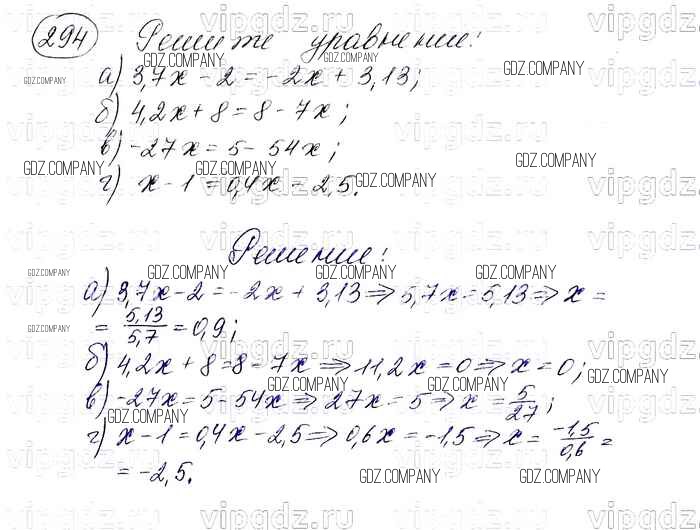 294 Решите уравнение:
а) 3,7x - 2 = -2x + 3,13;
б) 4,2x + 8 = 8 - 7x;
в) -27x = 5 - 54x;
г) x - 1 = 0,4x - 2,5.
Решение:
а) 3,7x - 2 = -2x + 3,13 ⇒ 5,7x = 5,13 ⇒ x =
= 5,13/5,7 = 0,9;
б) 4,2x + 8 = 8 - 7x ⇒ 11,2x = 0 ⇒ x = 0;
в) -27x = 5 - 54x ⇒ 27x = 5 ⇒ x = 5/27;
г) x - 1 = 0,4x - 2,5 ⇒ 0,6x = -1,5 ⇒ x = -1,5/0,6 =
= -2,5.
GDZ.COMPANY
vipgdz.ru